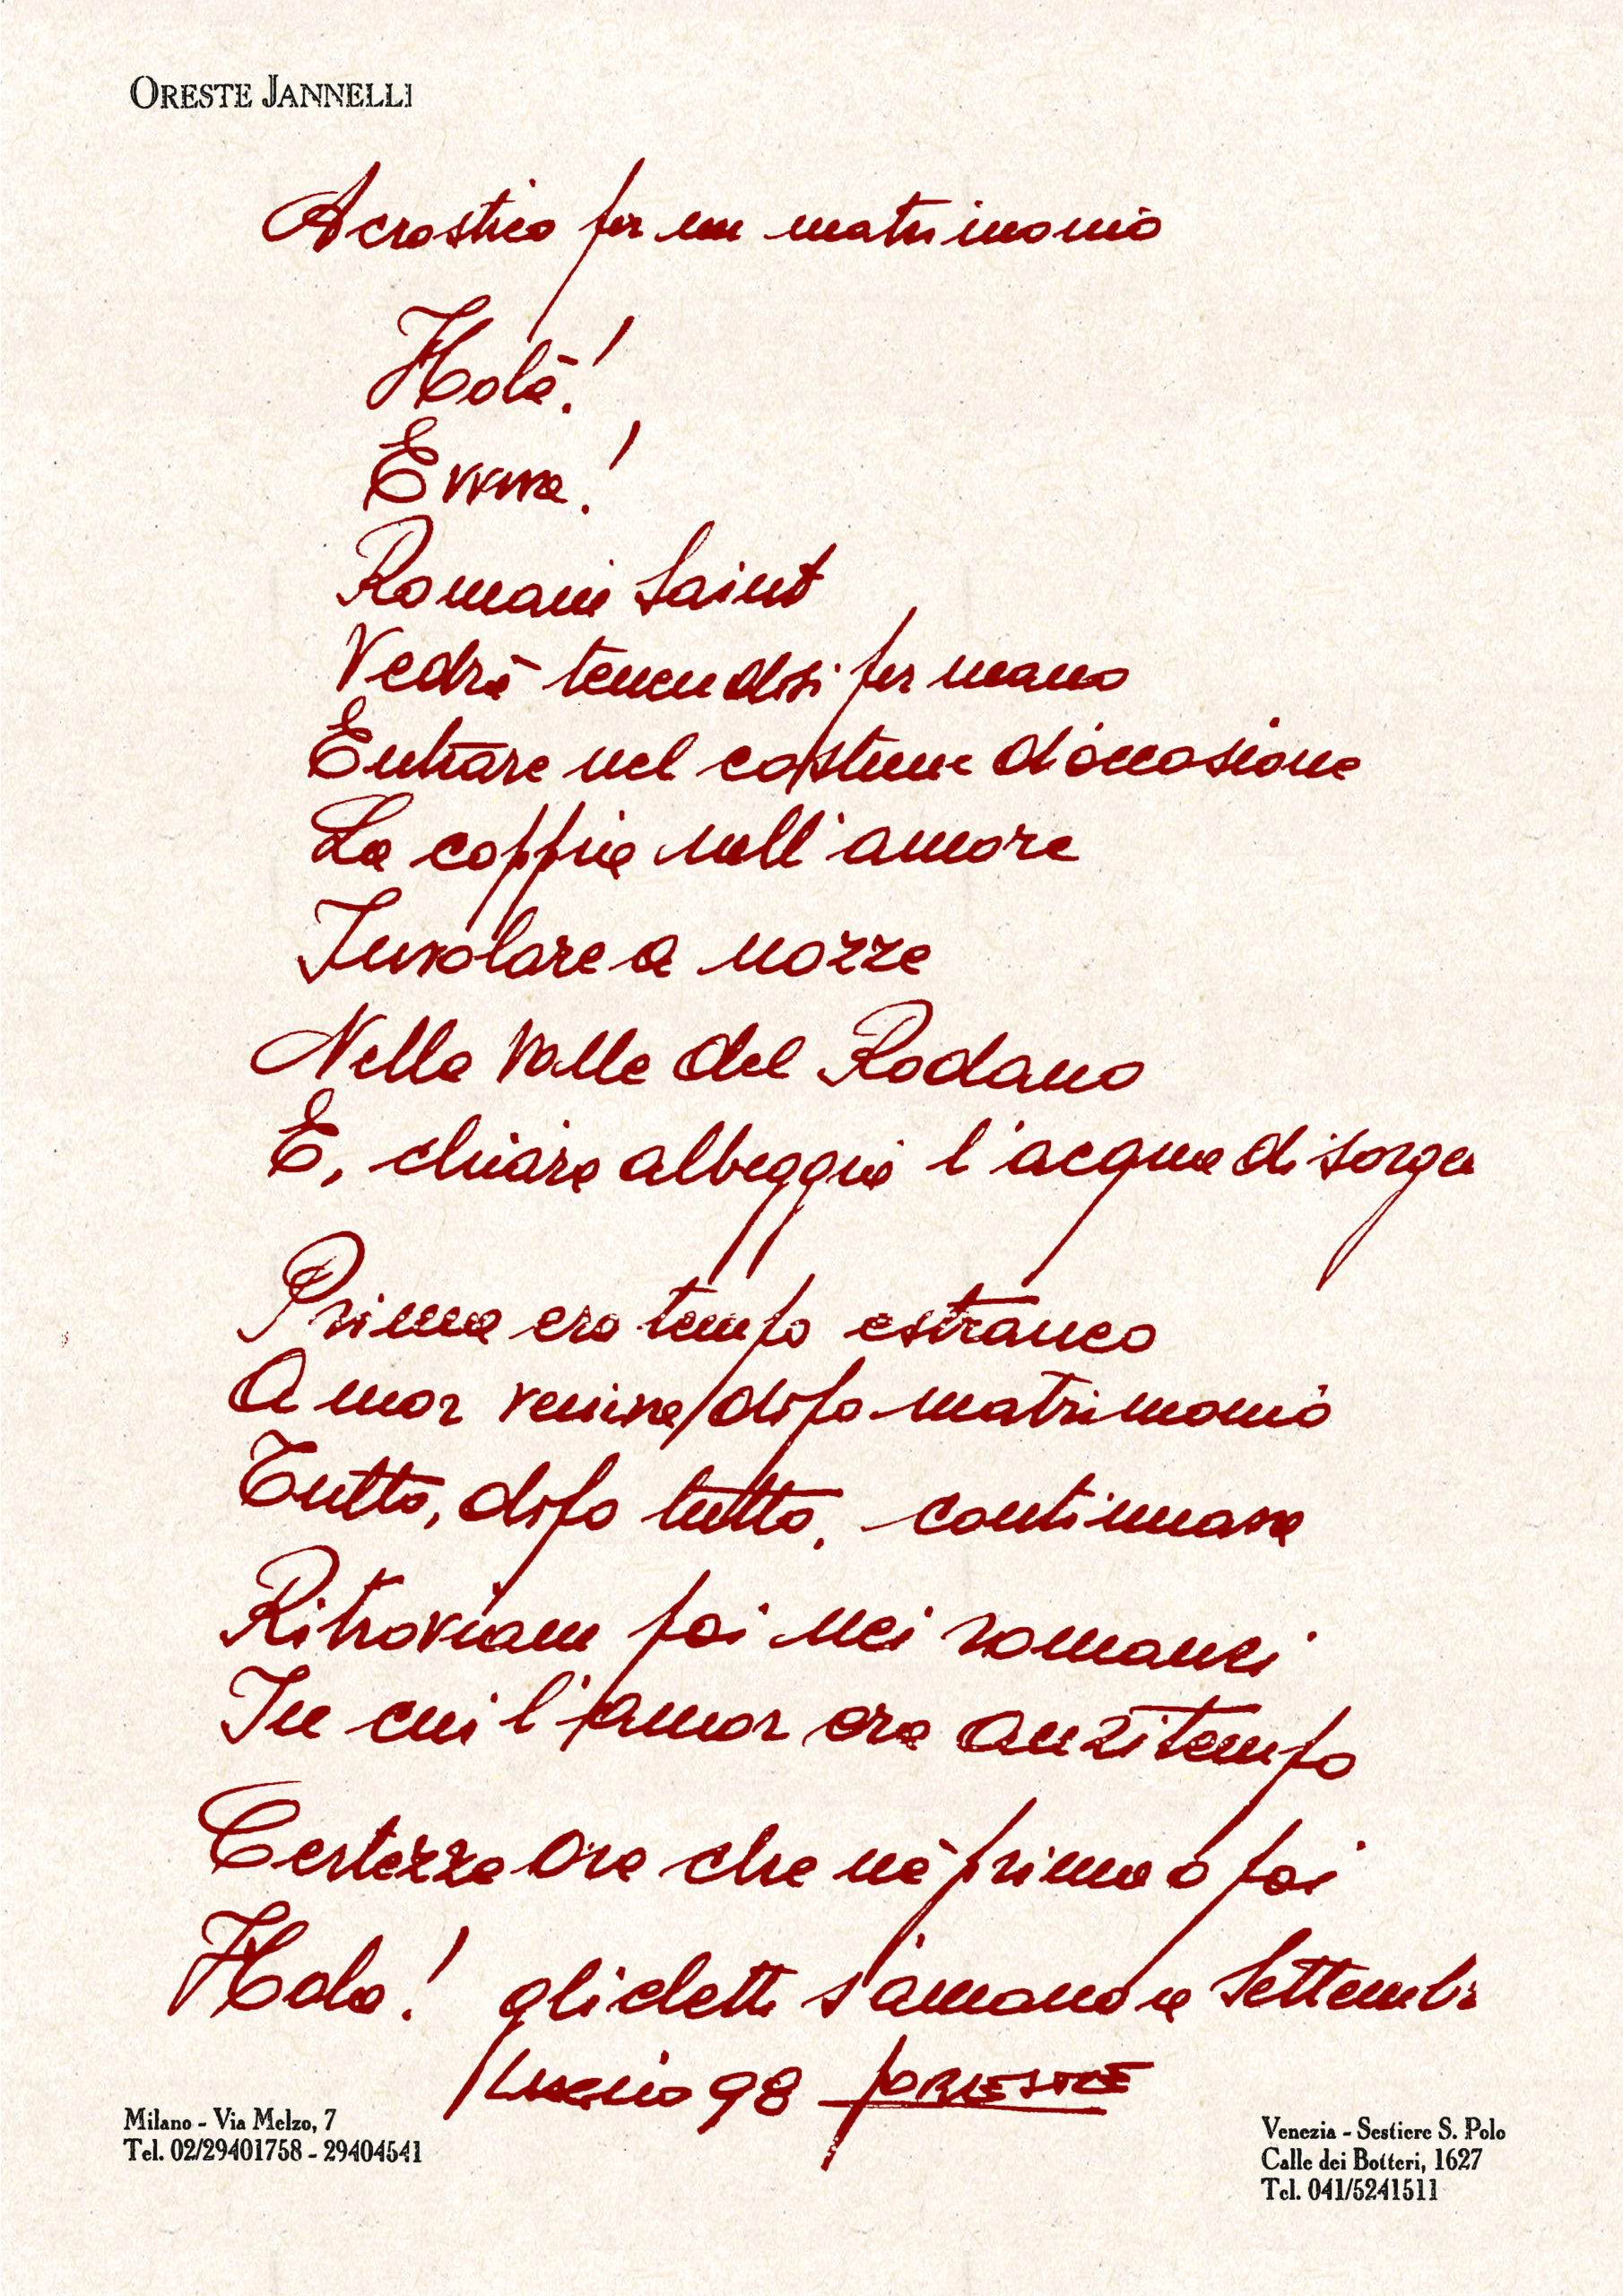 ORESTE JANNELLI
Acrostico per un matrimonio
Holà!
Evviva!
Romani Saint
Vedrà tenendosi per mano
Entrare nel costume d'occasione
La coppia nell'amore
Involare a nozze
Nella Valle del Rodano
E, chiara albeggia l'acqua di sorga
Prima era tempo estraneo
Amor veniva dopo matrimonio
Tutto, dopo tutto, continuava
Ritroviam poi nei romanzi
In cui l'amor era anzitempo
Certezza ora che nè prima o poi
Hola! gli eletti s'amano a Settembr
Luglio 98 ORESTE
Milano - Via Melzo, 7
Tel. 02/29401758 - 29404541
Venezia - Sestiere S. Polo
Calle dei Botteri, 1627
Tel. 041/5241511